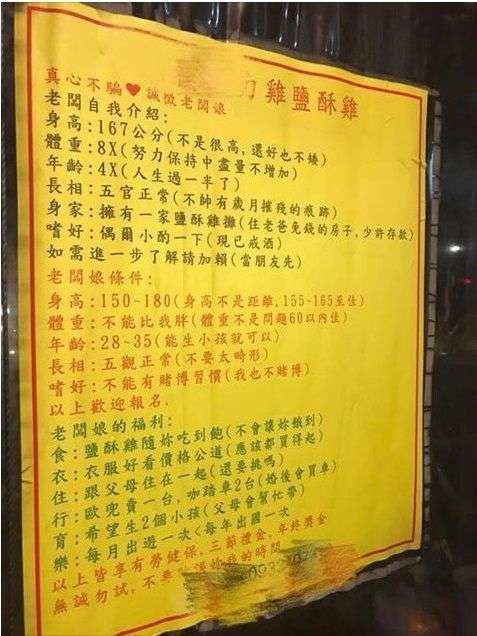 雞鹽酥雞
真心不騙♥誠徵老闆娘
老闆自我介紹:
身高:167公分(不是很高,還好也不矮)
體重:8X(努力保持中盡量不增加)
年齡:4X(人生過一半了)
長相:五官正常(不帥有歲月摧殘的痕跡)
身家:擁有一家鹽酥雞攤(住老爸免錢的房子,少許存款)
嗜好:偶爾小酌一下(現已戒酒)
如需進一步了解請加賴(當朋友先)
老闆娘條件:
身高:150-180(身高不是距離,155-165至佳)
體重:不能比我胖(體重不是問題60以內佳)
年齡:28-35(能生小孩就可以)
長相:五觀正常(不要太畸形)
嗜好:不能有賭博習慣(我也不賭博)
以上歡迎報名.
老闆娘的福利:
食:鹽酥雞隨妳吃到飽(不會讓妳餓到)
衣:衣服好看價格公道(應該都買得起)
住:跟父母住在一起(還要挑嗎)
行:歐兜賣一台,咖踏車2台(婚後會買車)
育:希望生2個小孩(父母會幫忙帶)
樂:每月出遊一次<每年出國一次
以上皆享有勞健保,三節禮金,年終獎金
無誠勿試,不要 妳我的時間